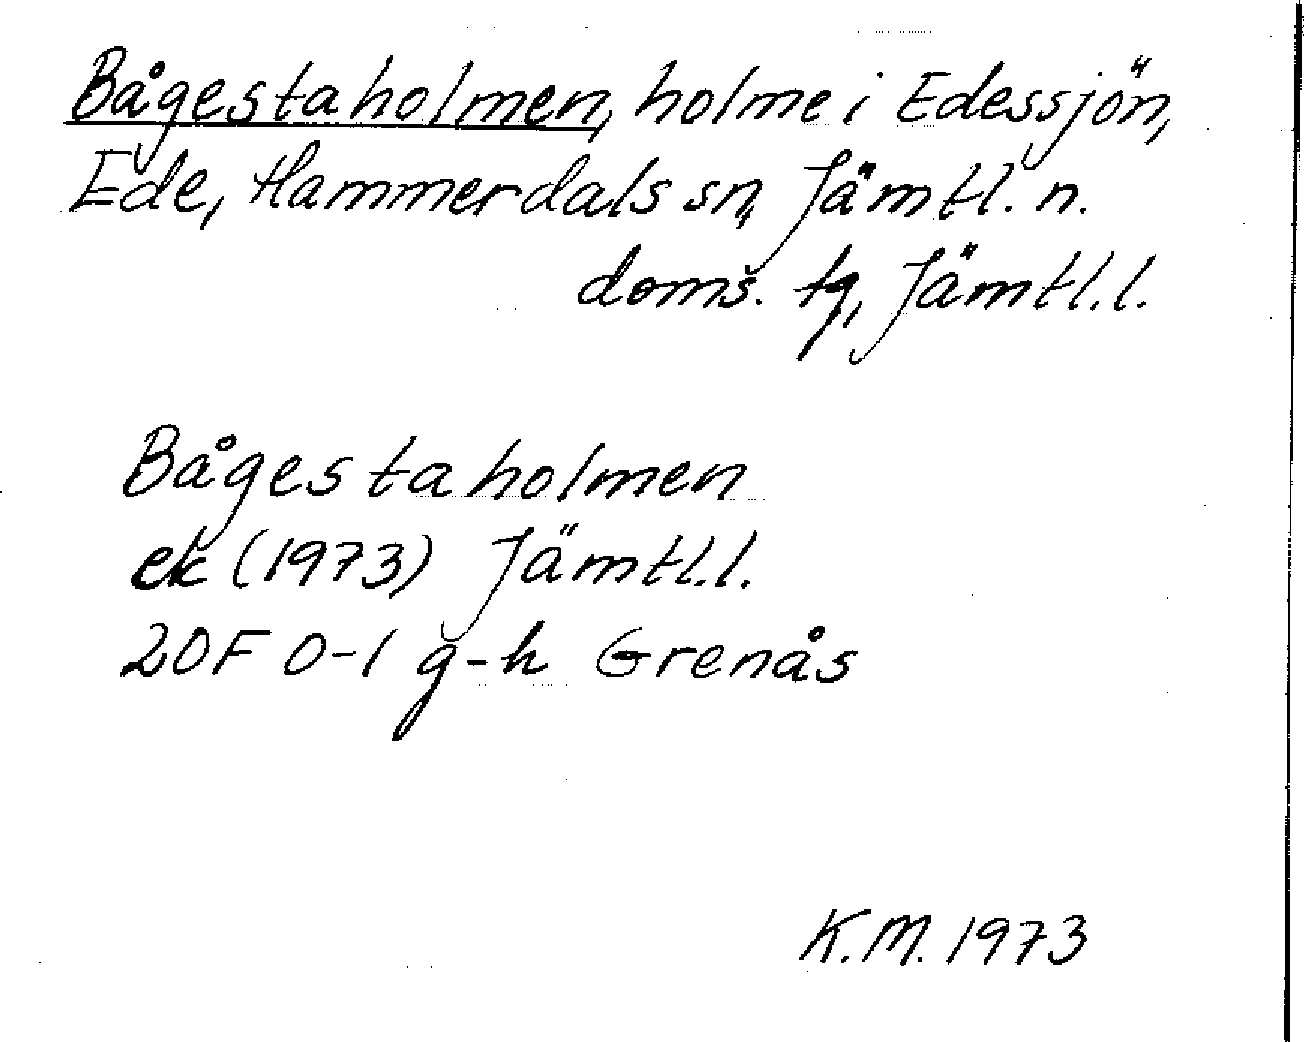 Bågestaholmen, holme i Edessjön,
Ede, Hammerdals sn, Jämtl. n.
doms. tg, Jämtl.l.
Bågestaholmen
ek (1973) Jämtl.l.
20F 0-1 g-h Grenås
K.M. 1973